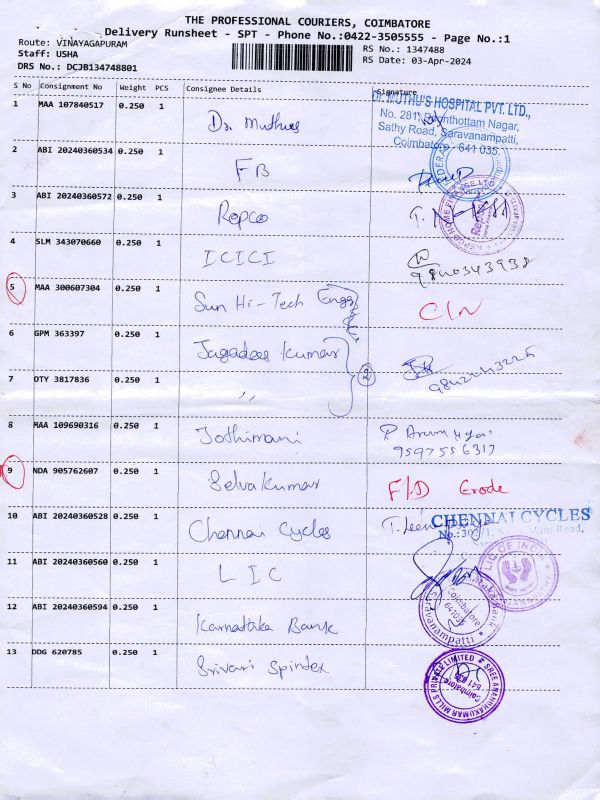 THE PROFESSIONAL COURIERS, COIMBATORE
Delivery Runsheet - SPT - Phone No.:0422-3505555 - Page No.:1
Route: VINAYAGAPURAM
Staff: USHA
DRS No.: DCJB134748801
RS No.: 1347488
RS Date: 03-Apr-2024
S No Consignment No Weight PCS Consignee Details Signature
1 MAA 107840517 0.250 1 Dr. Muthus
Dr. MUTHU'S HOSPITAL PVT. LTD.,
No. 281, Poonthottam Nagar,
Sathy Road, Saravanampatti,
Coimbatore - 641 035.
2 ABI 20240360534 0.250 1 FB
3 ABI 20240360572 0.250 1 Repco
4 SLM 343070660 0.250 1 ICICI
9840343938
5 MAA 300607304 0.250 1 Sun Hi-Tech Engg
6 GPM 363397 0.250 1 Jagadees Kumar
2
7 OTY 3817836 0.250 1 ,,
8 MAA 109690316 0.250 1 Jothimani
9597556317
9 NDA 905762607 0.250 1 Selvakumar F/D Erode
10 ABI 20240360528 0.250 1 Chennai Cycles
CHENNAI CYCLES
11 ABI 20240360560 0.250 1 LIC
L.I.C. OF INDIA
12 ABI 20240360594 0.250 1 Karnataka Bank
Coimbatore
641035
Saravanampatti
13 DDG 620785 0.250 1 Srivari Spintex
SREE ANANDHAKUMAR MILLS PRIVATE LIMITED
Coimbatore